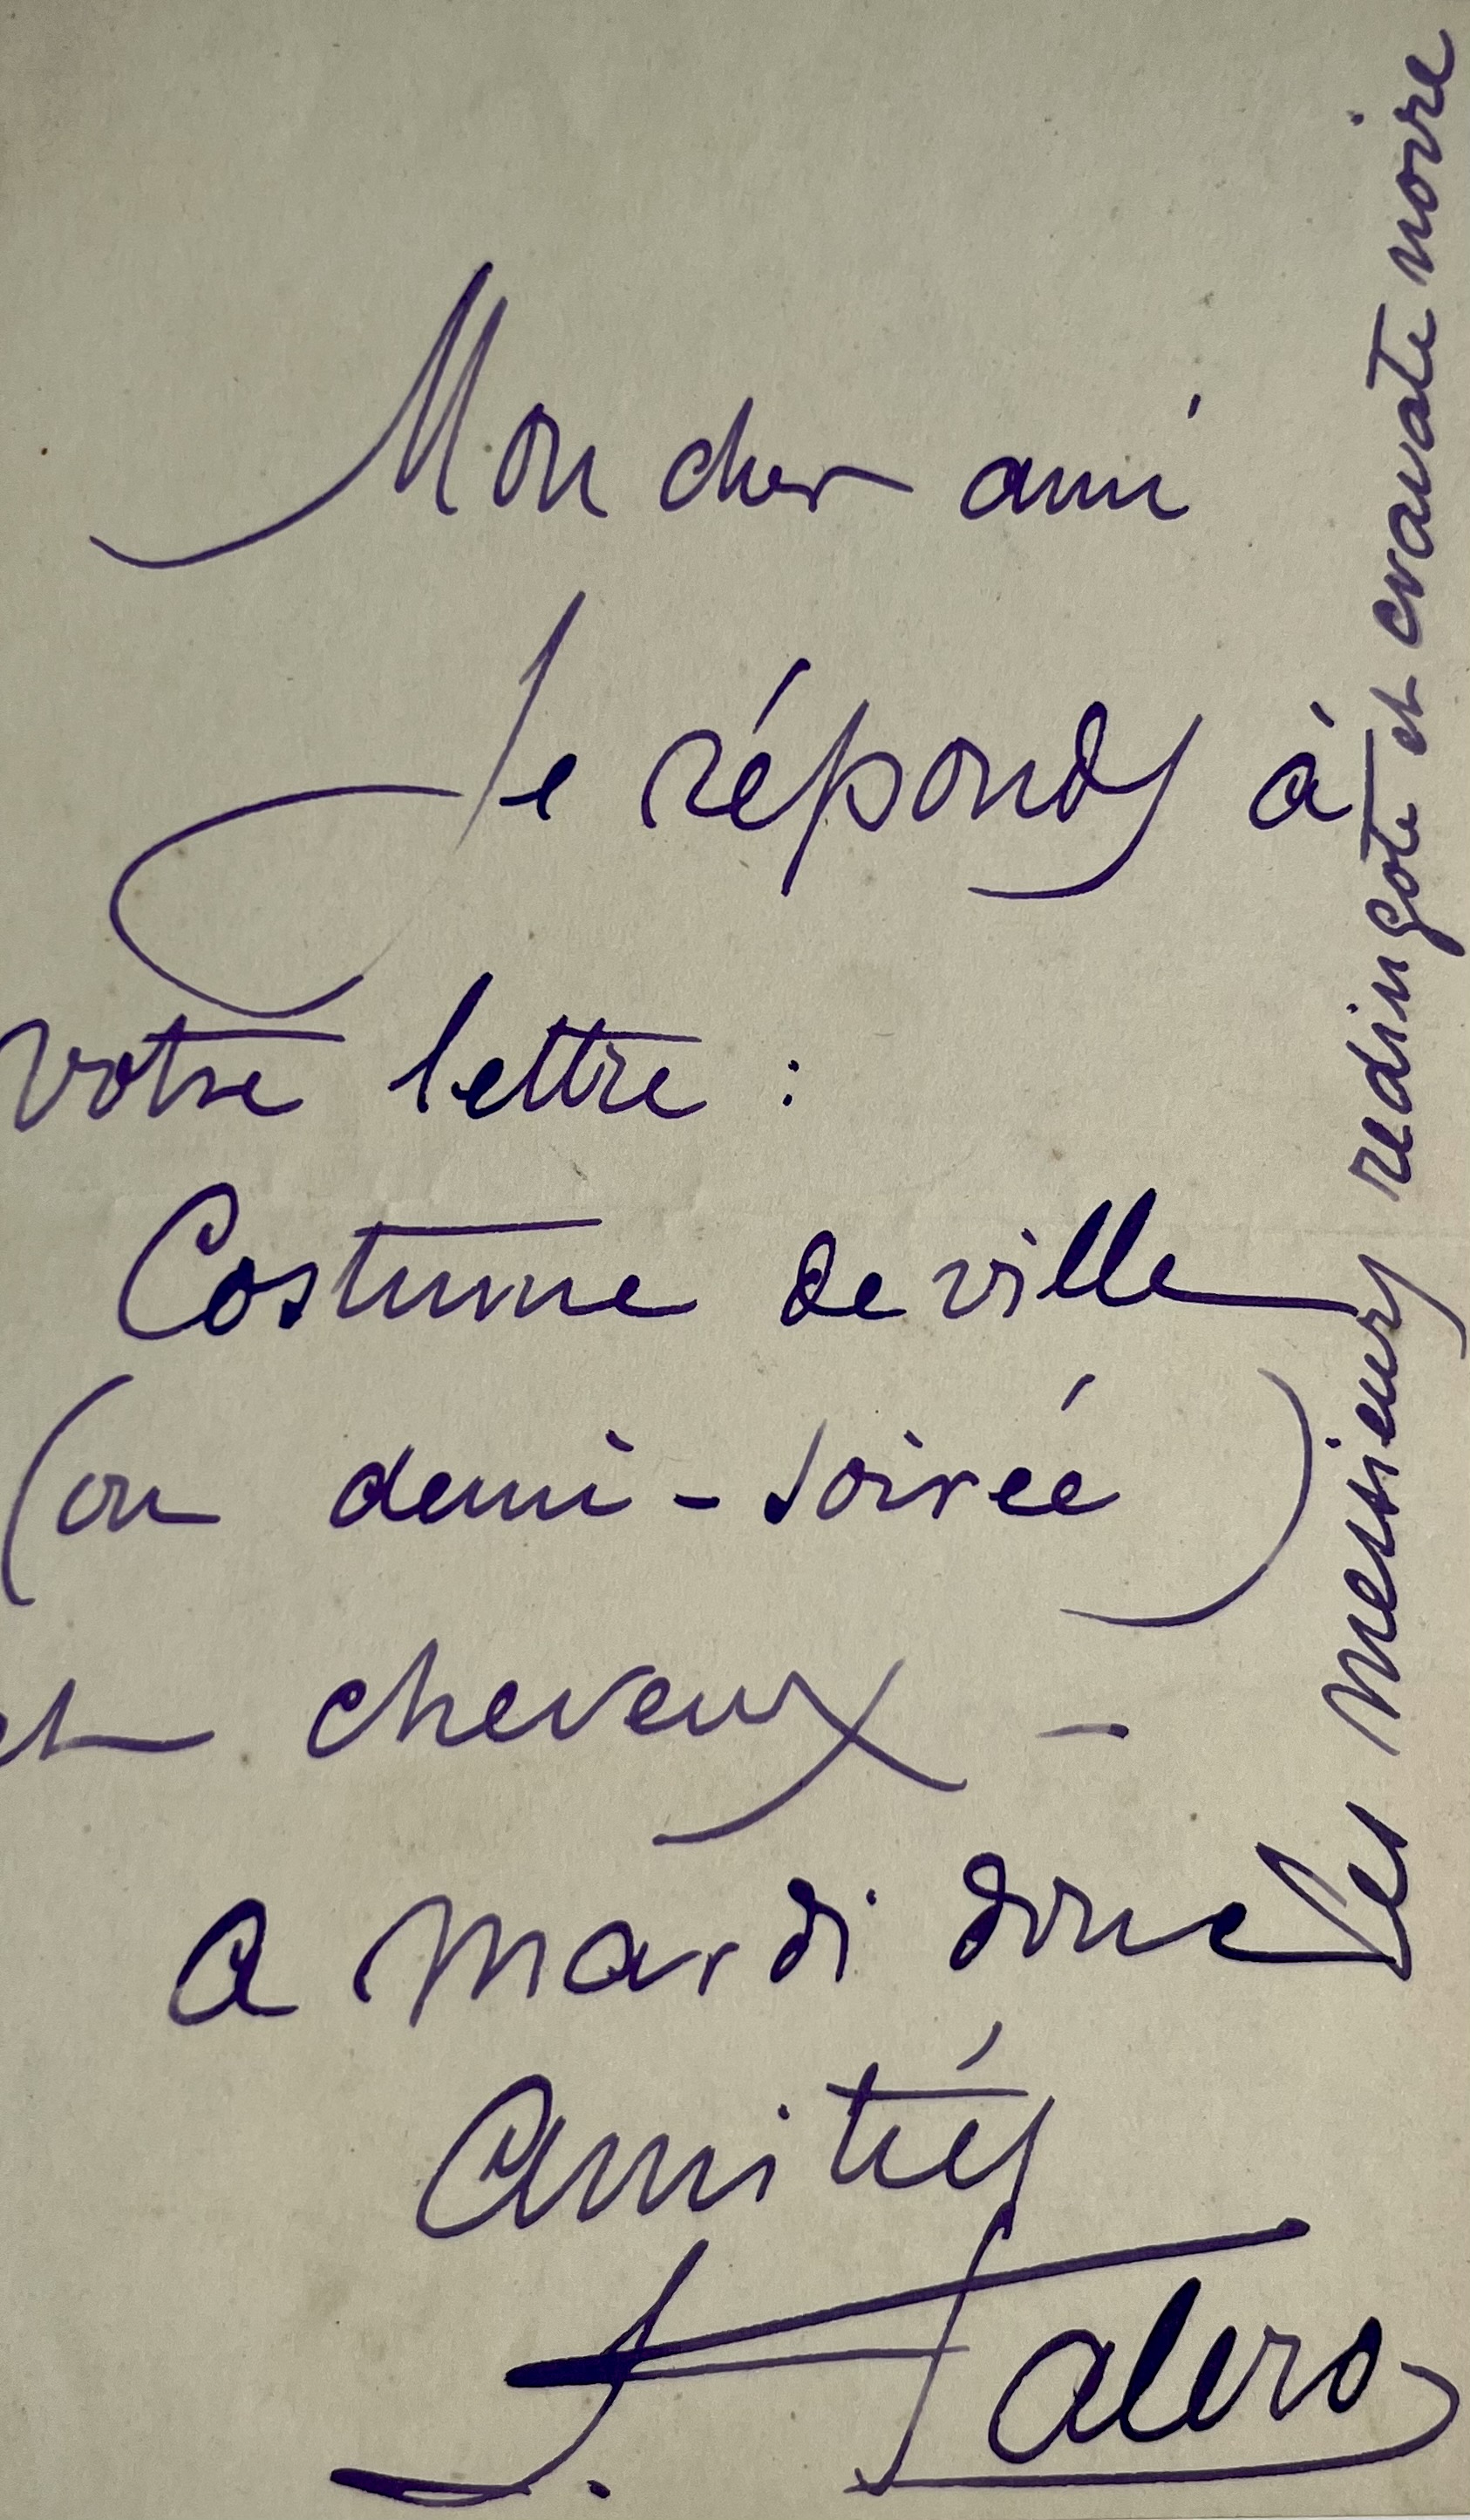 Mon cher ami
Je réponds à
votre lettre :
Costume de ville
(ou demi-soirée)
et cheveux -
a mardi donc
Amitiés
J. Valero
Les messieurs redingote et cravate noire